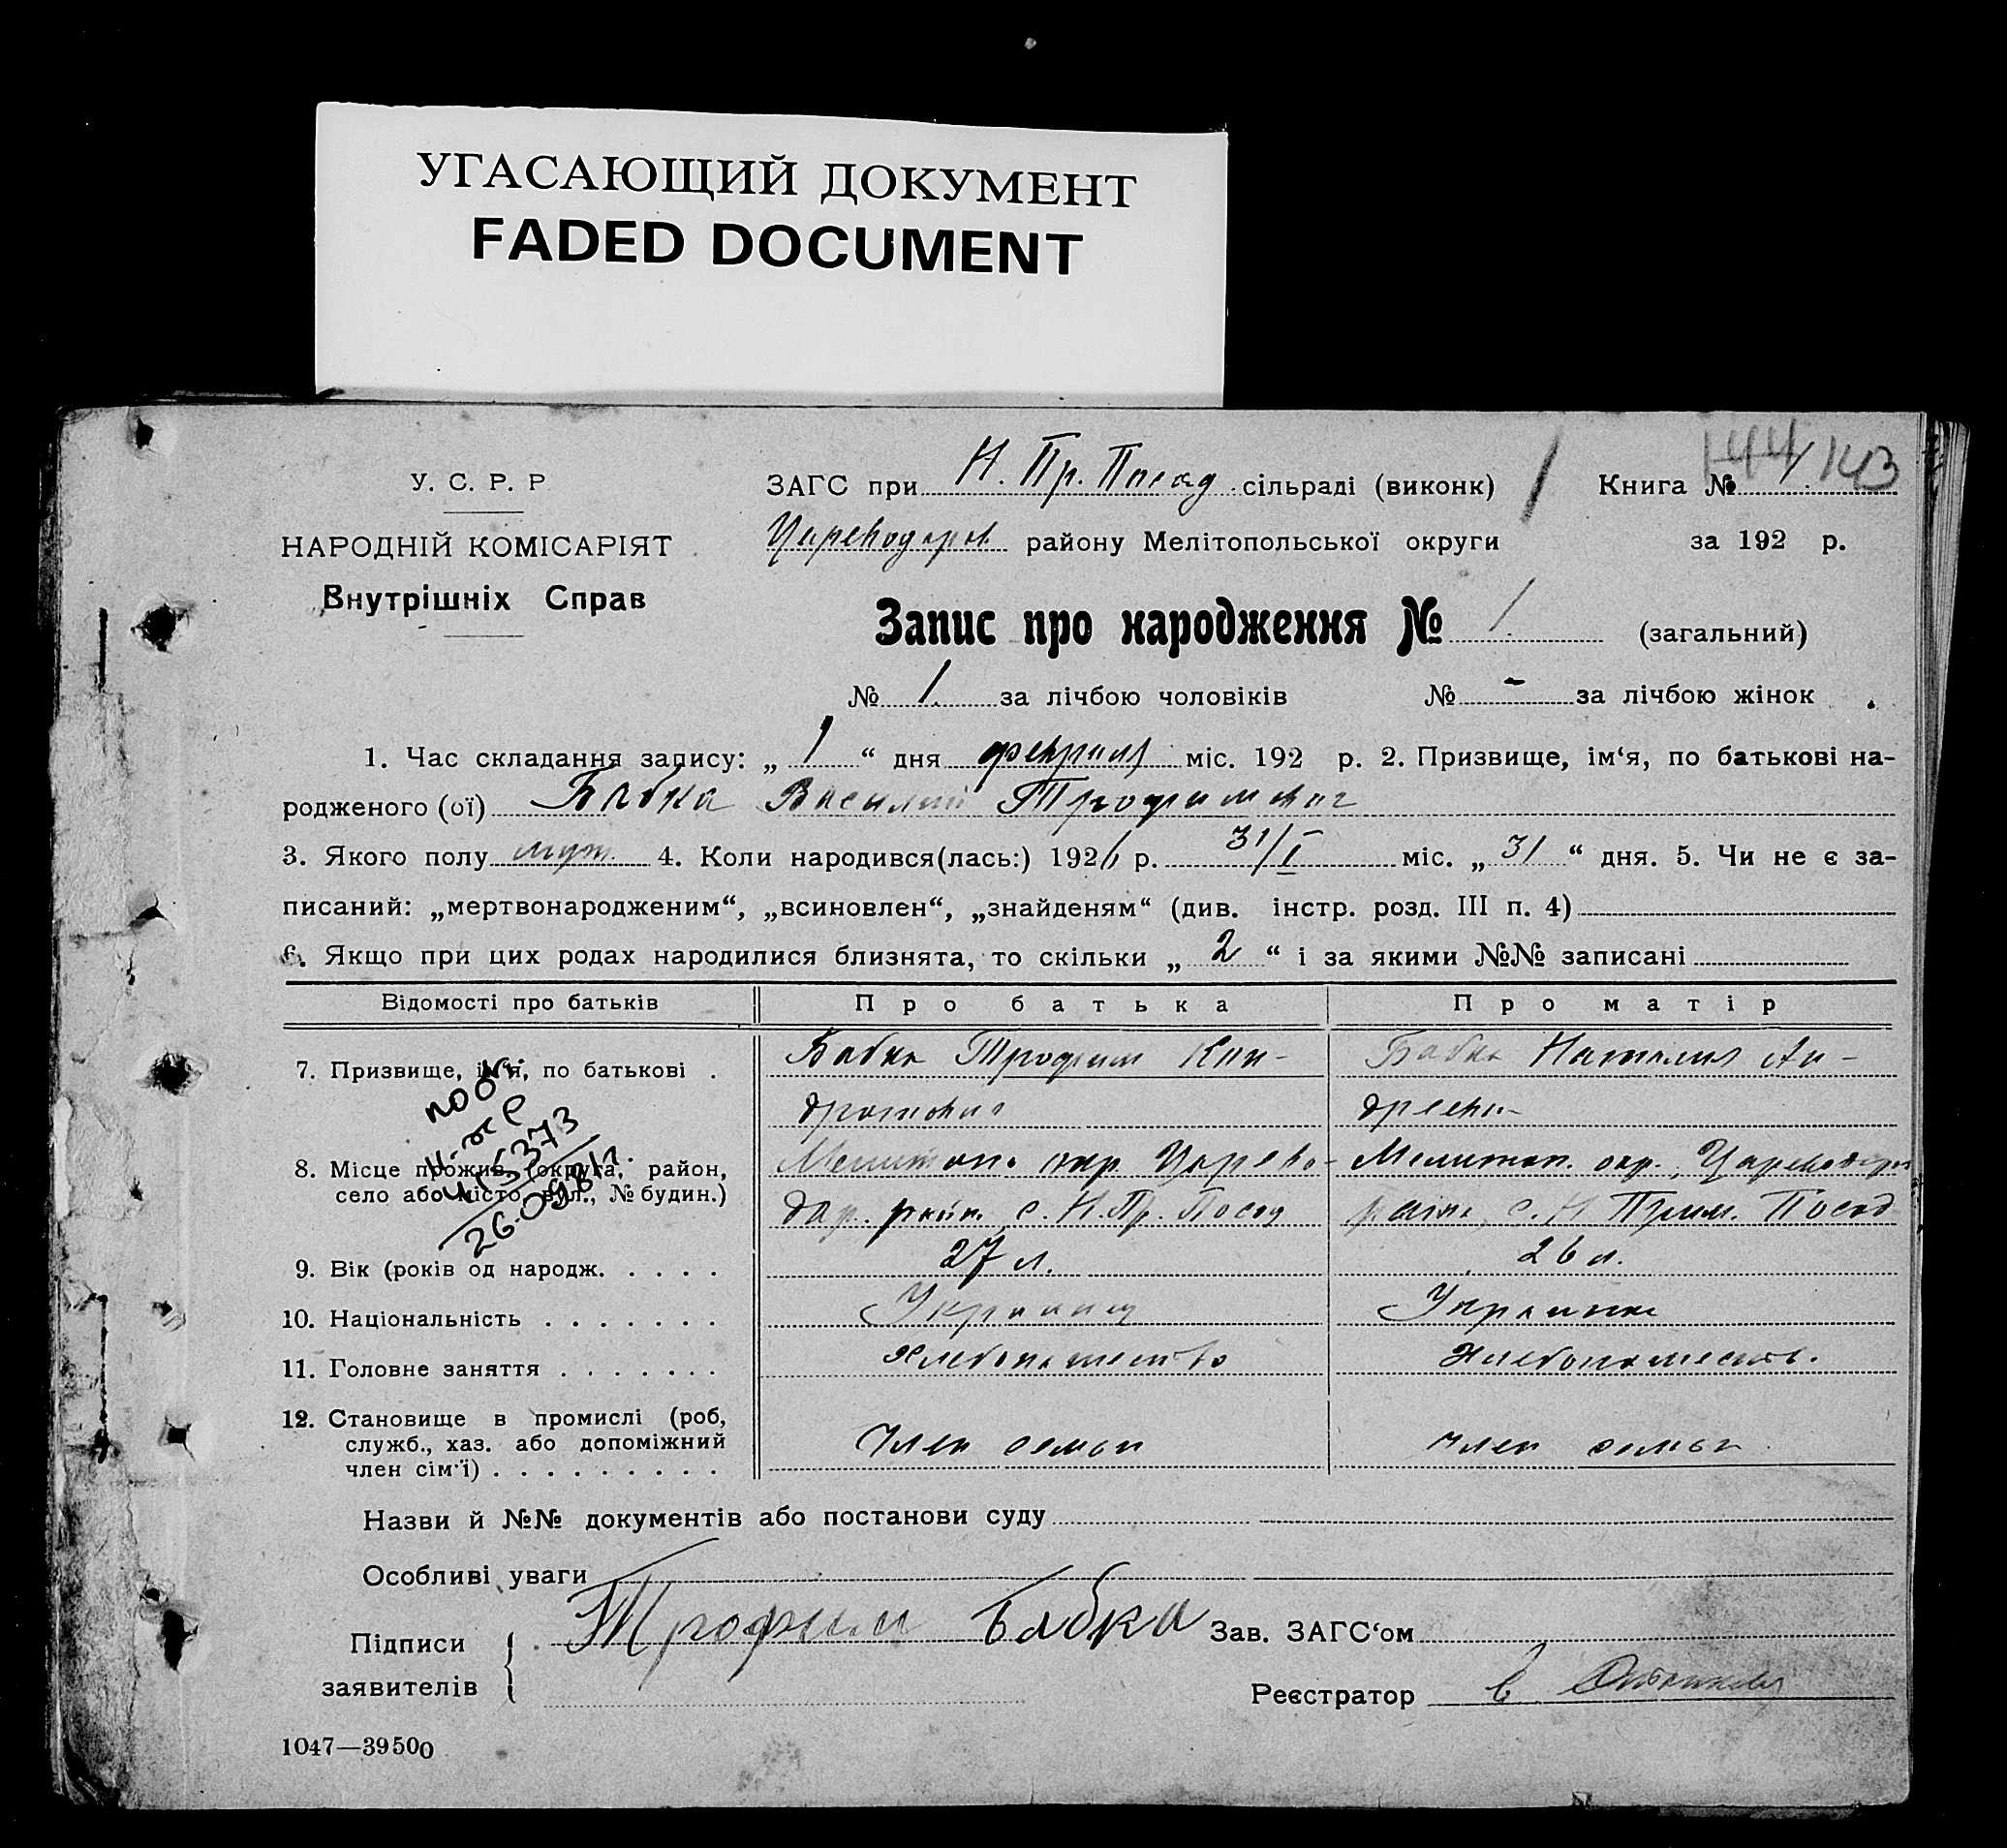 УГАСАЮЩИЙ ДОКУМЕНТ
FADED DOCUMENT
144 / 143
У. С. Р. Р
НАРОДНІЙ КОМІСАРІЯТ
Внутрішніх Справ
ЗАГС при Н. Пр. Посад сільраді (виконк) 1 Книга № 1
Цареводаров району Мелітопольської округи за 192 р.
Запис про народження № 1. (загальний)
№ 1. за лічбою чоловіків № - за лічбою жінок
1. Час складання запису: „ 1 “ дня февраля міс. 192 р. 2. Призвище, ім‘я, по батькові на-
родженого (ої) Бабка Василий Трофимович
3. Якого полу муж. 4. Коли народився(лась:) 1926 р. 31/I міс. „ 31 “ дня. 5. Чи не є за-
писаний: „мертвонародженим“, „всиновлен“, „знайденям“ (див. інстр. розд. III п. 4)
6. Якщо при цих родах народилися близнята, то скільки „ 2 “ і за якими №№ записані
Відомості про батьків Про батька Про матір
7. Призвище, ім‘я, по батькові . Бабка Трофим Кон- Бабка Наталия Ан-
дратович дреевн-
8. Місце прожив. (округа, район, Мелитоп. окр. Царево- Мелитоп. окр., Цареводар
село або місто, вул., № будин.) дар. район. с. Н. Пр. Посад район, с. Н Прим. Посад
415373
26.09
9. Вік (років од народж. . . . . 27 л. 26 л.
10. Національність . . . . . . . Украинец Украинка
11. Головне заняття . . . . . . . Хлебопашество Хлебопашеств.
12. Становище в промислі (роб,
служб., хаз. або допоміжний Член семьи Член семьи
член сім‘ї) . . . . . . . . .
Назви й №№ документів або постанови суду
Особливі уваги
Підписи Трофим Бабка Зав. ЗАГС‘ом
заявителів Реєстратор
1047—39500